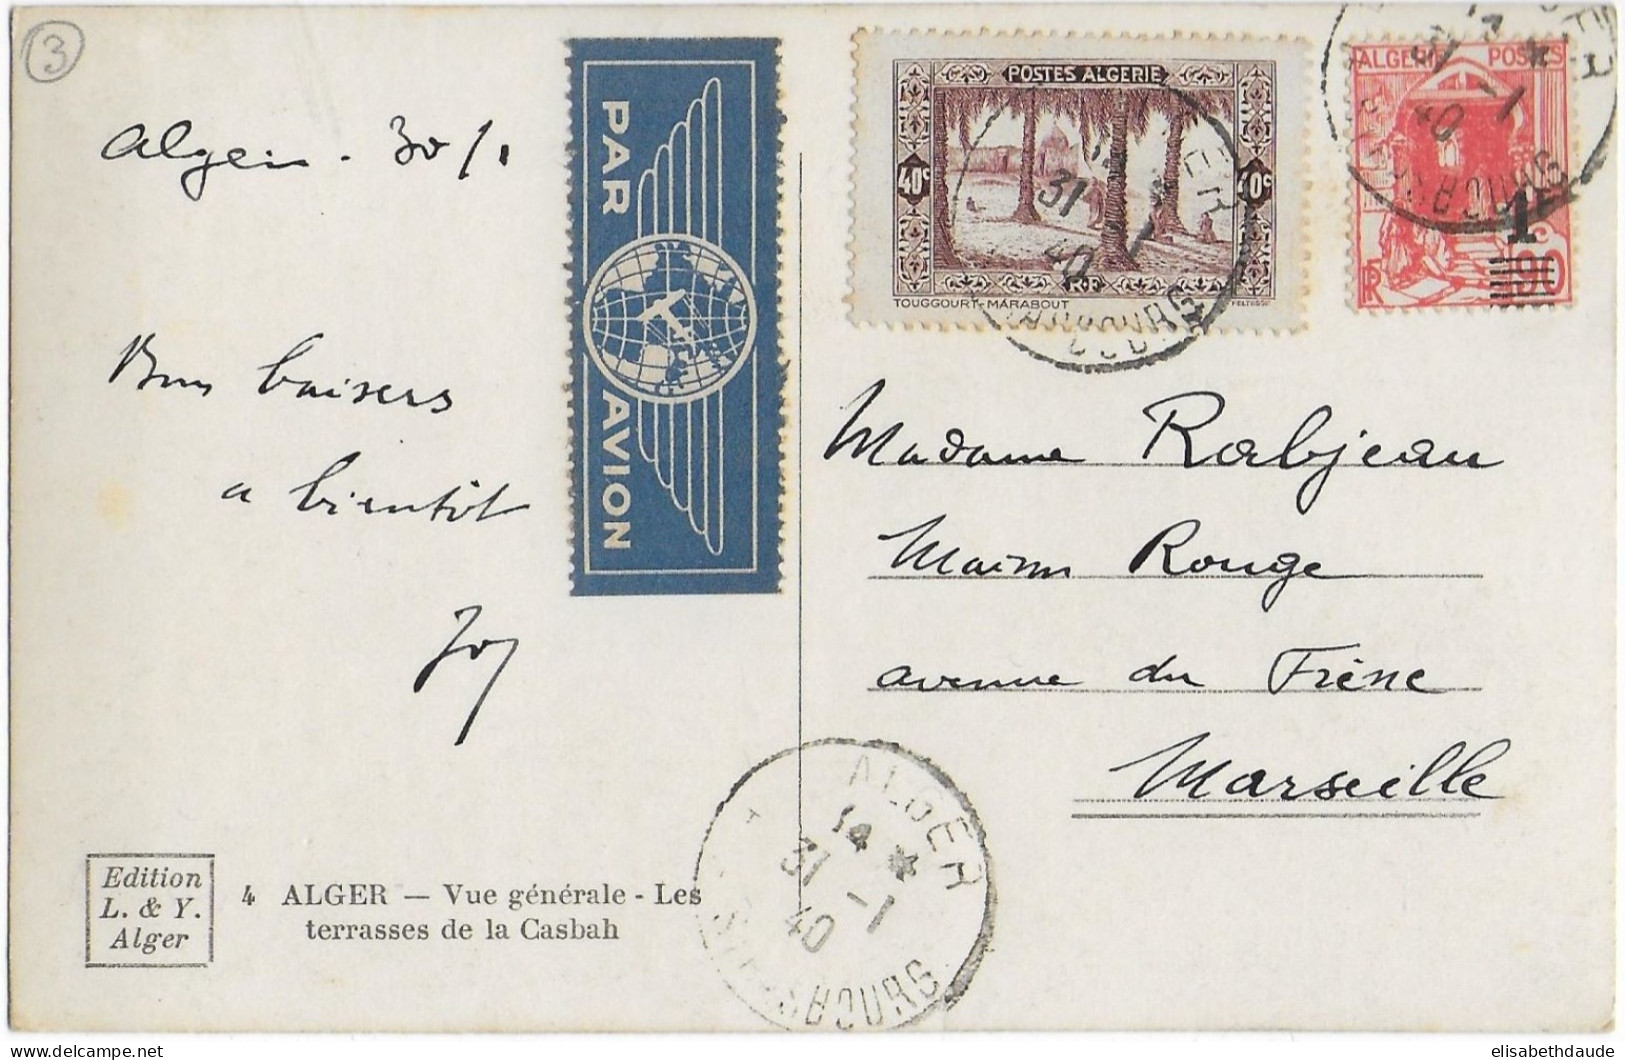 3
Alger - 30/1
Bons baisers
a bientôt
PAR AVION
POSTES ALGERIE
40c 40c
RF
TOUGGOURT-MARABOUT
ALGERIE POSTES
1
90
RF
ALGER
31 -1
40
STRASBOURG
Madame Rabjean
Maison Rouge
avenue du Frêne
Marseille
ALGER
14 *
31 -1
40
STRASBOURG
Edition
L. & Y.
Alger
4 ALGER — Vue générale - Les
terrasses de la Casbah
elisabethdaude